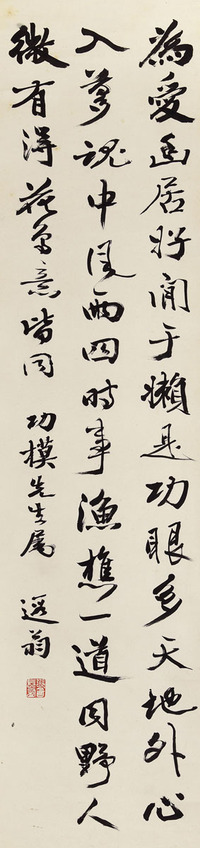 為愛幽居好閒于懶是功眼多天地外心
入夢魂中風雨四時事漁樵一道同野人
微有得花鳥意皆同
功模先生屬 遐翁